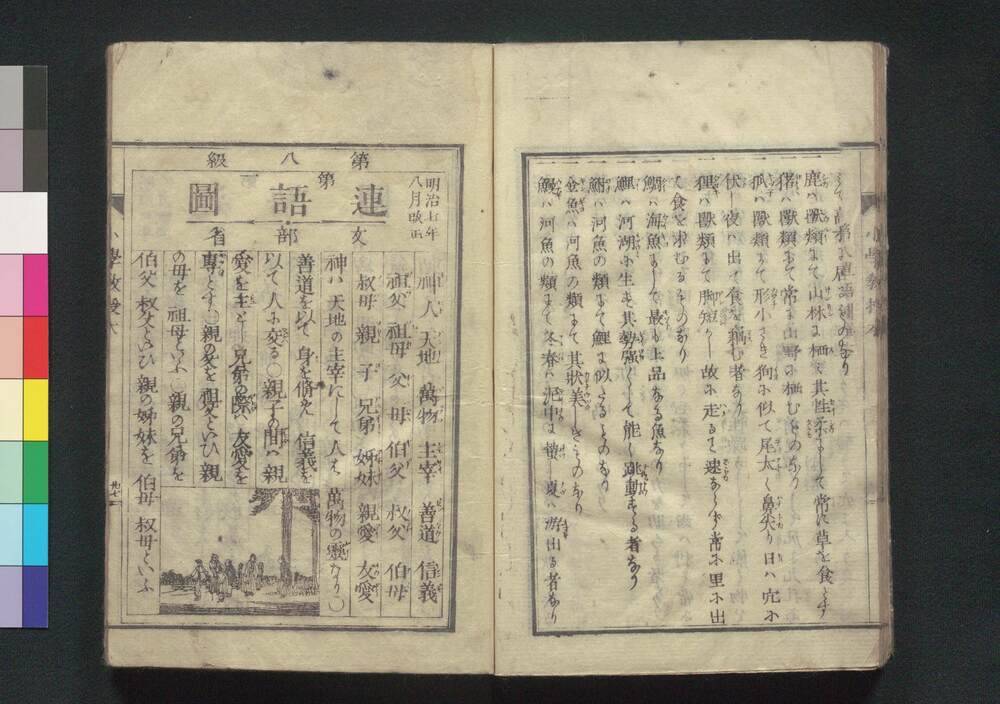 鹿ハ獣類にて山林に栖て其性柔にして常に草を食とす
猪ハ獣類にて常に山野に栖むものなり
狐ハ獣類にて形小さき狗に似て尾太く鼻尖り日ハ穴に
伏し夜ハ出て食を窃む者なり
狸ハ獣類にて脚短かし故に走るに速ならず常に里に出
て食を求むるものなり
鯛ハ海魚にして最も上品なる魚なり
鯉ハ河湖に生ず其勢強くして能く跳動する者なり
鮒ハ河魚の類にて鯉に似たるものなり
金魚ハ河魚の類にて其状美しきものなり
鰻ハ河魚の類にて冬春ハ泥中に蟄し夏ハ游出る者なり
第八級
明治七年
八月改正
第一
連語圖
文部省
神 人 天地 萬物 主宰 善道 信義
祖父 祖母 父 母 伯父 叔父 伯母
叔母 親 子 兄弟 姊妹 親愛 友愛
神ハ天地の主宰にして人ハ萬物の靈なり〇
善道を以て身を脩め 信義を
以て人に交る〇親子の間ハ親
愛を主とし兄弟の際ハ友愛を
專とす〇親の父を祖父といひ親
の母を祖母といふ〇親の兄弟を
伯父 叔父といひ 親の姊妹を 伯母 叔母といふ
小學教授本
九十